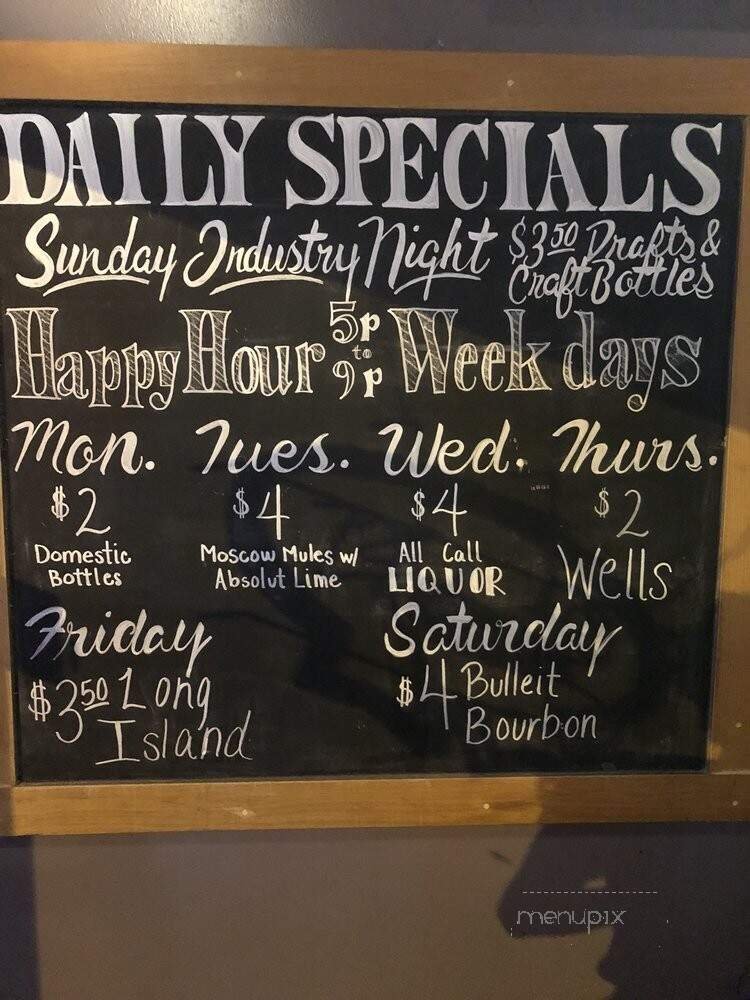 DAILY SPECIALS
Sunday Industry Night $3.50 Drafts &
Craft Bottles
Happy Hour 5p to 9p Week days
Mon. Tues. Wed. Thurs.
$2 $4 $4 $2
Domestic Bottles Moscow Mules w/ Absolut Lime All Call LIQUOR Wells
Friday Saturday
$3.50 Long Island $4 Bulleit Bourbon
menupix